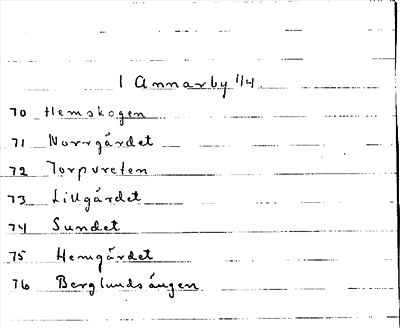 1 Annarby 1/4
70 Hemskogen
71 Norrgärdet
72 Torpvreten
73 Lillgärdet
74 Sundet
75 Hemgärdet
76 Berglundsängen